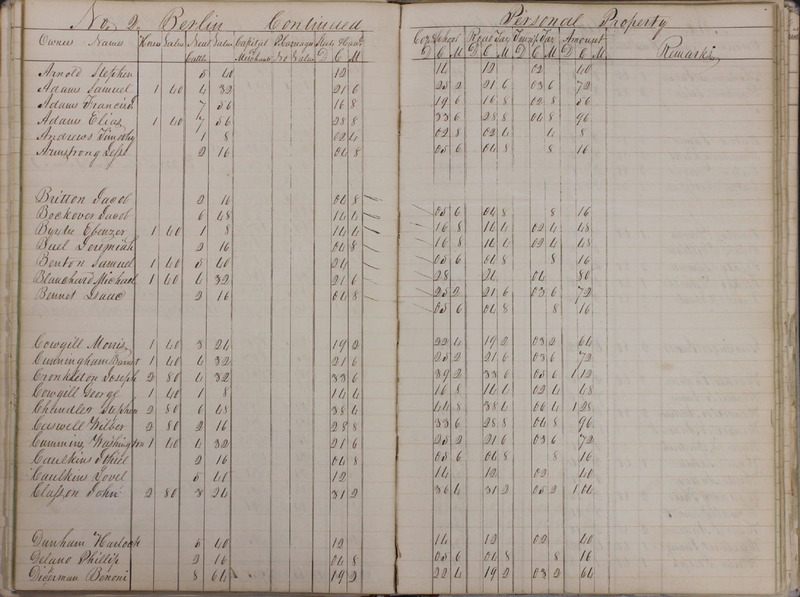 No. 2. Berlin Continued Personal Property
Owners Names Horses Value Neat Cattle Value Capital Merchant Value State & Canal D C M Co. & School D C M Road Tax D C M Townsp Tax D C M Amount D C M Remarks
Arnold Stephen 5 40 12 14 12 02 40
Adams Samuel 1 40 4 32 21 6 25 2 21 6 03 6 72
Adams Francis 7 56 16 8 19 6 16 8 02 8 56
Adams Elias 1 40 7 56 28 8 33 6 28 8 04 8 96
Andrews Timothy 1 8 02 4 02 8 02 4 4 8
Armstrong 2 16 04 8 05 6 04 8 8 16
Britton Jacob 2 16 04 8
Bockover Jacob 6 48 14 4 05 6 04 8 8 16
Byrdie Ebenezer 1 40 1 8 14 4 16 8 14 4 02 4 48
Buel Jeremiah 2 16 04 8 16 8 14 4 02 4 48
Benton Samuel 1 40 5 40 24 05 6 04 8 8 16
Blanchard Michael 1 40 4 32 21 6 28 24 04 80
Bennet Isaac 2 16 04 8 25 2 21 6 03 6 72
05 6 04 8 8 16
Cowgill Morris 1 40 3 24 19 2 22 4 19 2 03 2 64
Cunningham Barnet 1 40 4 32 21 6 25 2 21 6 03 6 72
Cronkleton Joseph 2 80 4 32 33 6 39 2 33 6 05 6 1 12
Cowgill George 1 40 1 8 14 4 16 8 14 4 02 4 48
Chlindler Stephen 2 80 6 48 38 4 44 8 38 4 06 4 1 28
Caswell Wilber 2 80 2 16 28 8 33 6 28 8 04 8 96
Cumming Washington 1 40 4 32 21 6 25 2 21 6 03 6 72
Caulkins 2 16 04 8 05 6 04 8 8 16
Caulkins Lovel 5 40 12 14 12 02 40
Classon John 2 80 3 24 31 2 36 4 31 2 05 2 1 04
Dunham Harlock 5 40 12 14 12 02 40
Delano Phillip 2 16 04 8 05 6 04 8 8 16
Dickerman Benoni 8 64 19 2 22 4 19 2 03 2 64